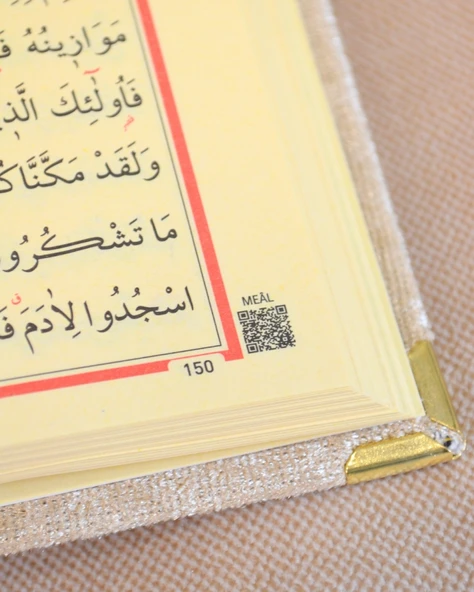 مَوَازٖينُهُ
فَاُو۬لٰٓئِكَ
وَلَقَدْ مَكَّنَّا
مَا تَشْكُرُو
اسْجُدُوا لِاٰدَمَ
MEÂL
150